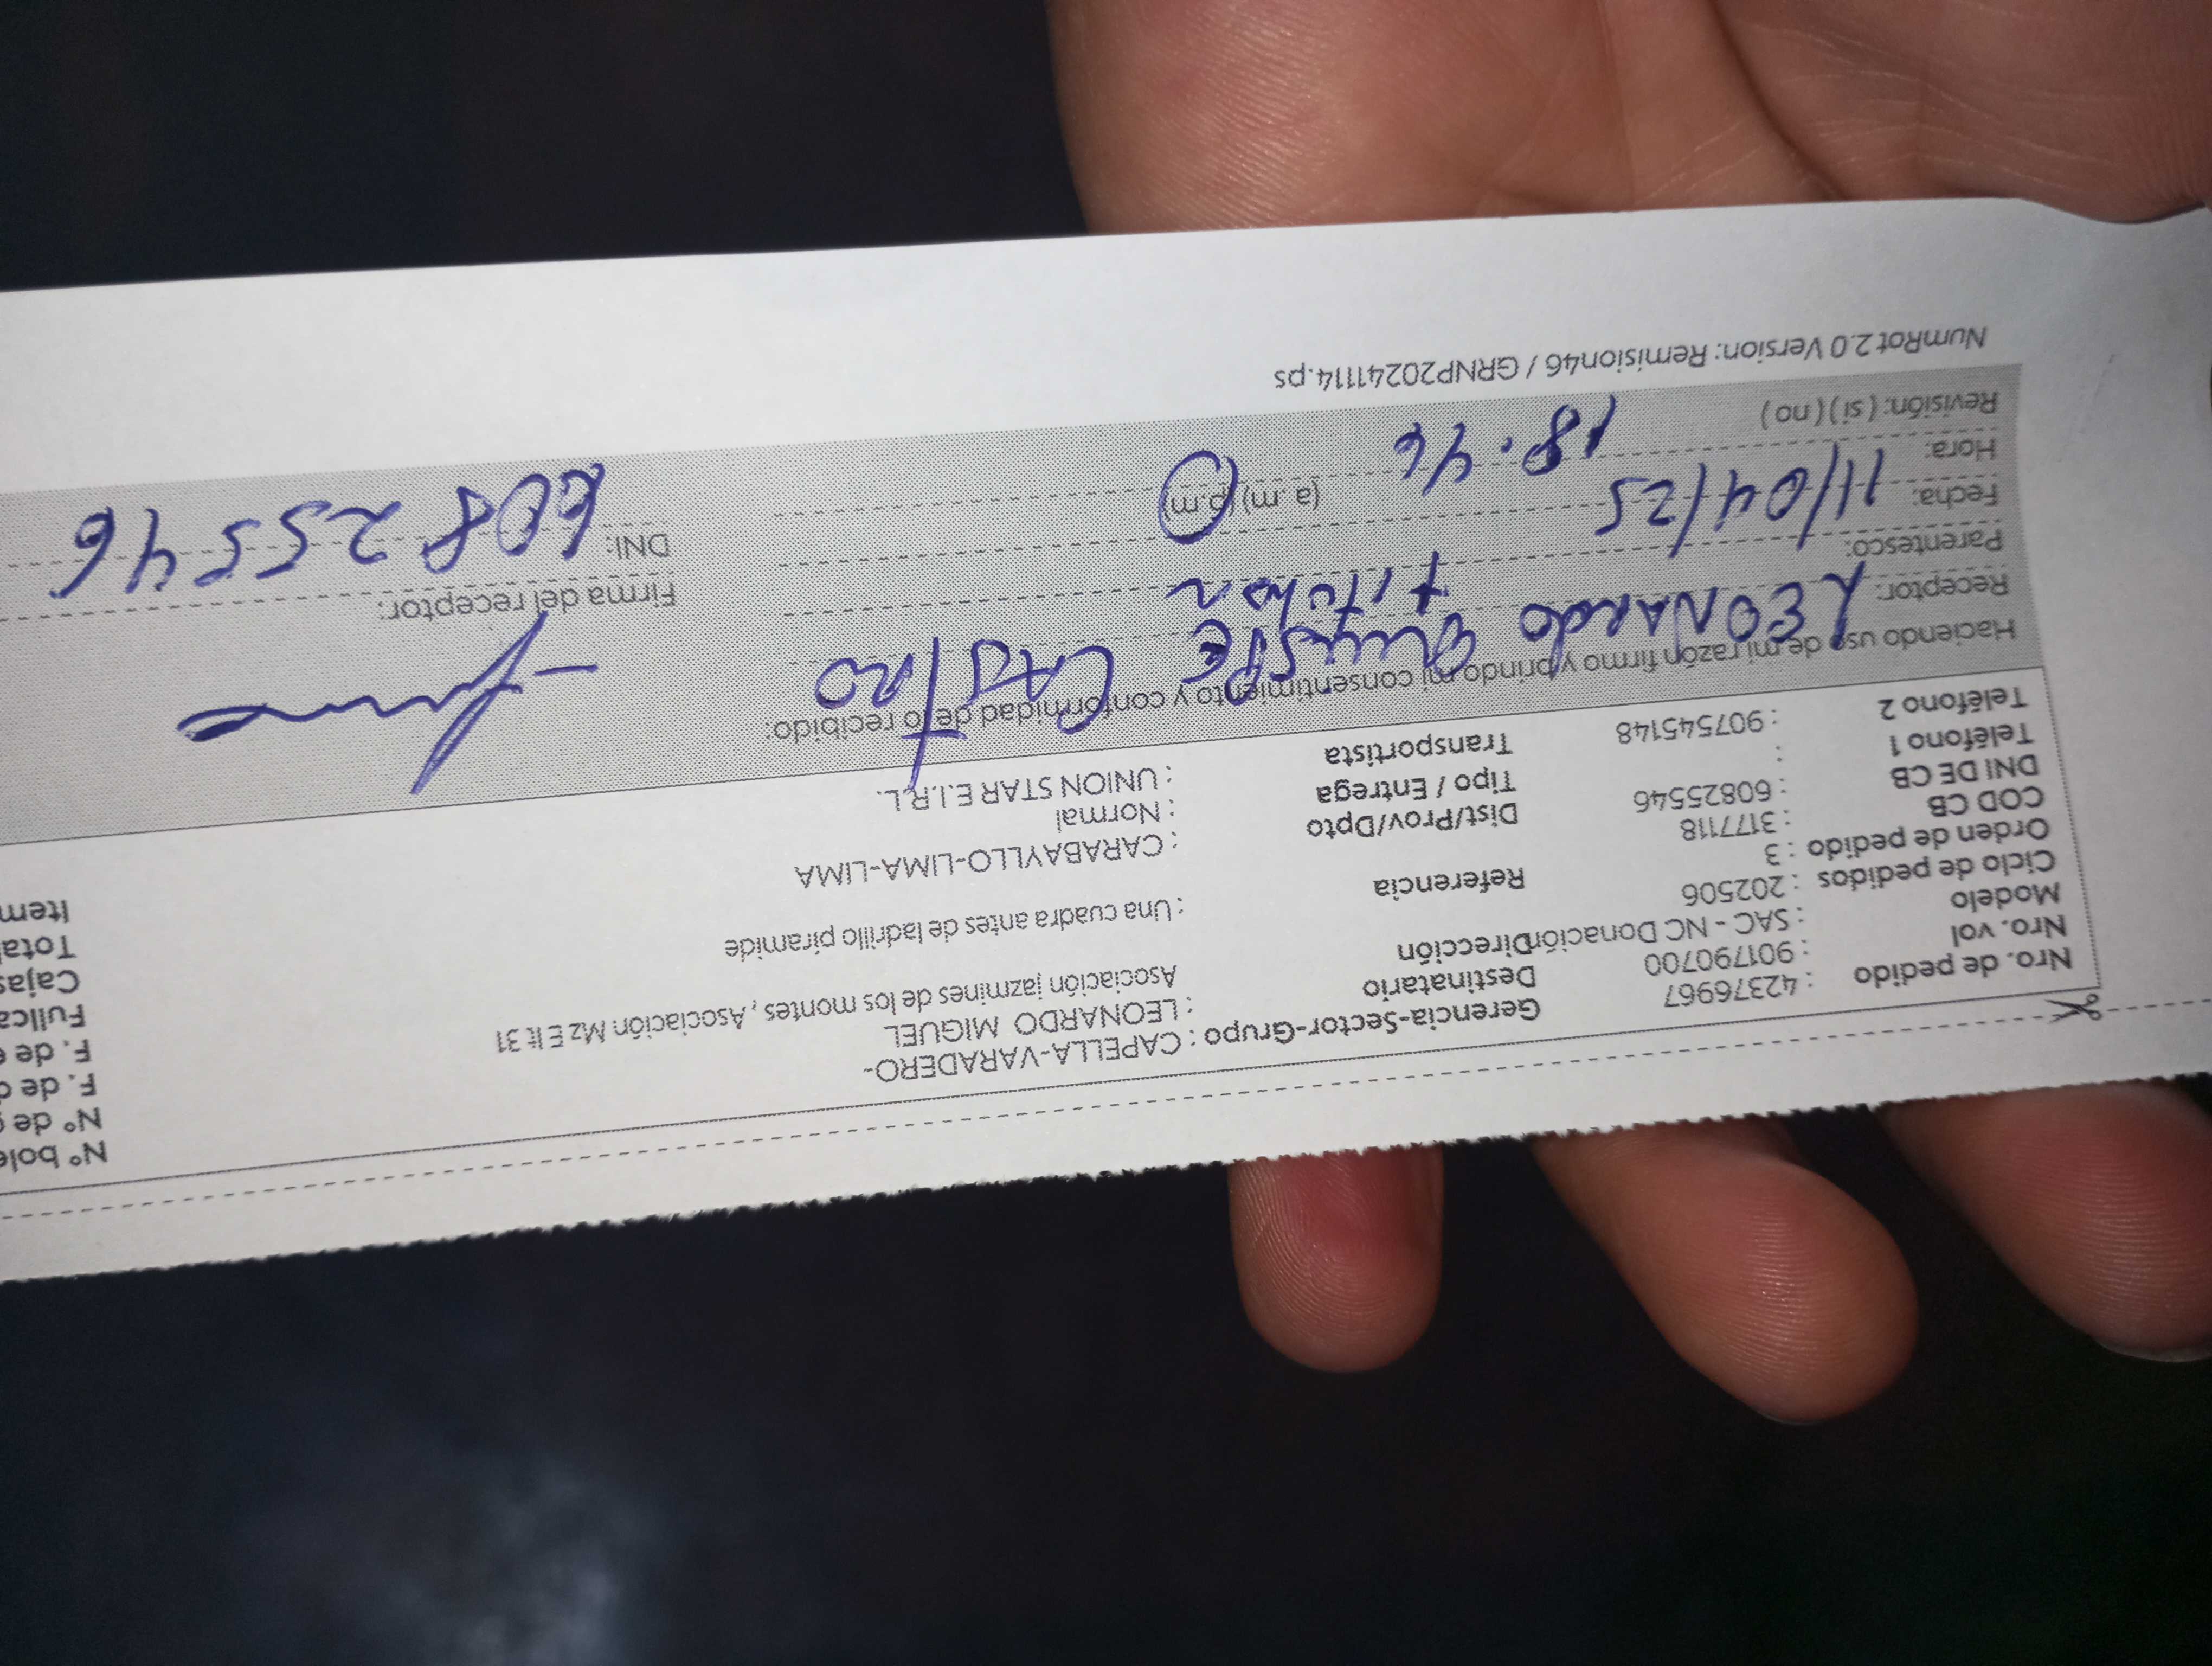 Nro. de pedido : 42376967
Nro. vol : 901790700
Modelo : SAC - NC Donación
Ciclo de pedidos : 202506
Orden de pedido : 3
COD CB : 3177118
DNI DE CB : 60825546
Teléfono 1 :
Teléfono 2 : 907545148
Gerencia-Sector-Grupo : CAPELLA-VARADERO-
Destinatario : LEONARDO MIGUEL
Dirección Asociación jazmines de los montes, Asociación Mz E lt 31
Referencia : Una cuadra antes de ladrillo piramide
Dist/Prov/Dpto : CARABAYLLO-LIMA-LIMA
Tipo / Entrega : Normal
Transportista : UNION STAR E.I.R.L.
N° bole
N° de
F. de
F. de
Fullca
Cajas
Tota
Item
Haciendo uso de mi razón firmo y brindo mi consentimiento y conformidad de lo recibido:
Receptor: LEONARDO QUISPE CASTRO
Parentesco: titular
Fecha: 11/04/25
Hora: 18.46 (a. m) (p.m)
Revisión: (si) (no)
Firma del receptor:
DNI: 60825546
NumRot 2.0 Version: Remision46 / GRNP20241114.ps